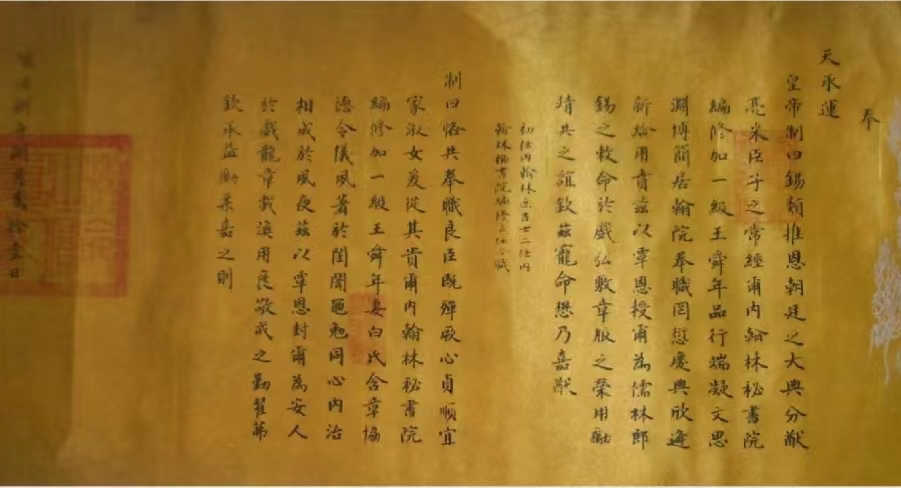 奉
天承運
皇帝制曰錫類推恩朝廷之大典分猷
亮采臣子之常經爾內翰林秘書院
編修加一級王舜年品行端凝文思
淵博簡居翰院奉職罔愆慶典欣逢
新綸用賁茲以覃恩授爾為儒林郎
錫之敕命於戲弘敷章服之榮用勵
靖共之誼欽茲寵命懋乃嘉猷
初任內翰林庶吉士二任內
翰林秘書院編修三任今職
制曰恪共奉職良臣既殫厥心貞順宜
家淑女爰從其貴爾內翰林秘書院
編修加一級王舜年妻白氏含章協
德令儀夙著於閨闈黽勉同心內治
相成於夙夜茲以覃恩封爾為安人
於戲龍章載渙用褒敬戒之勤翟茀
欽承益勵柔嘉之則